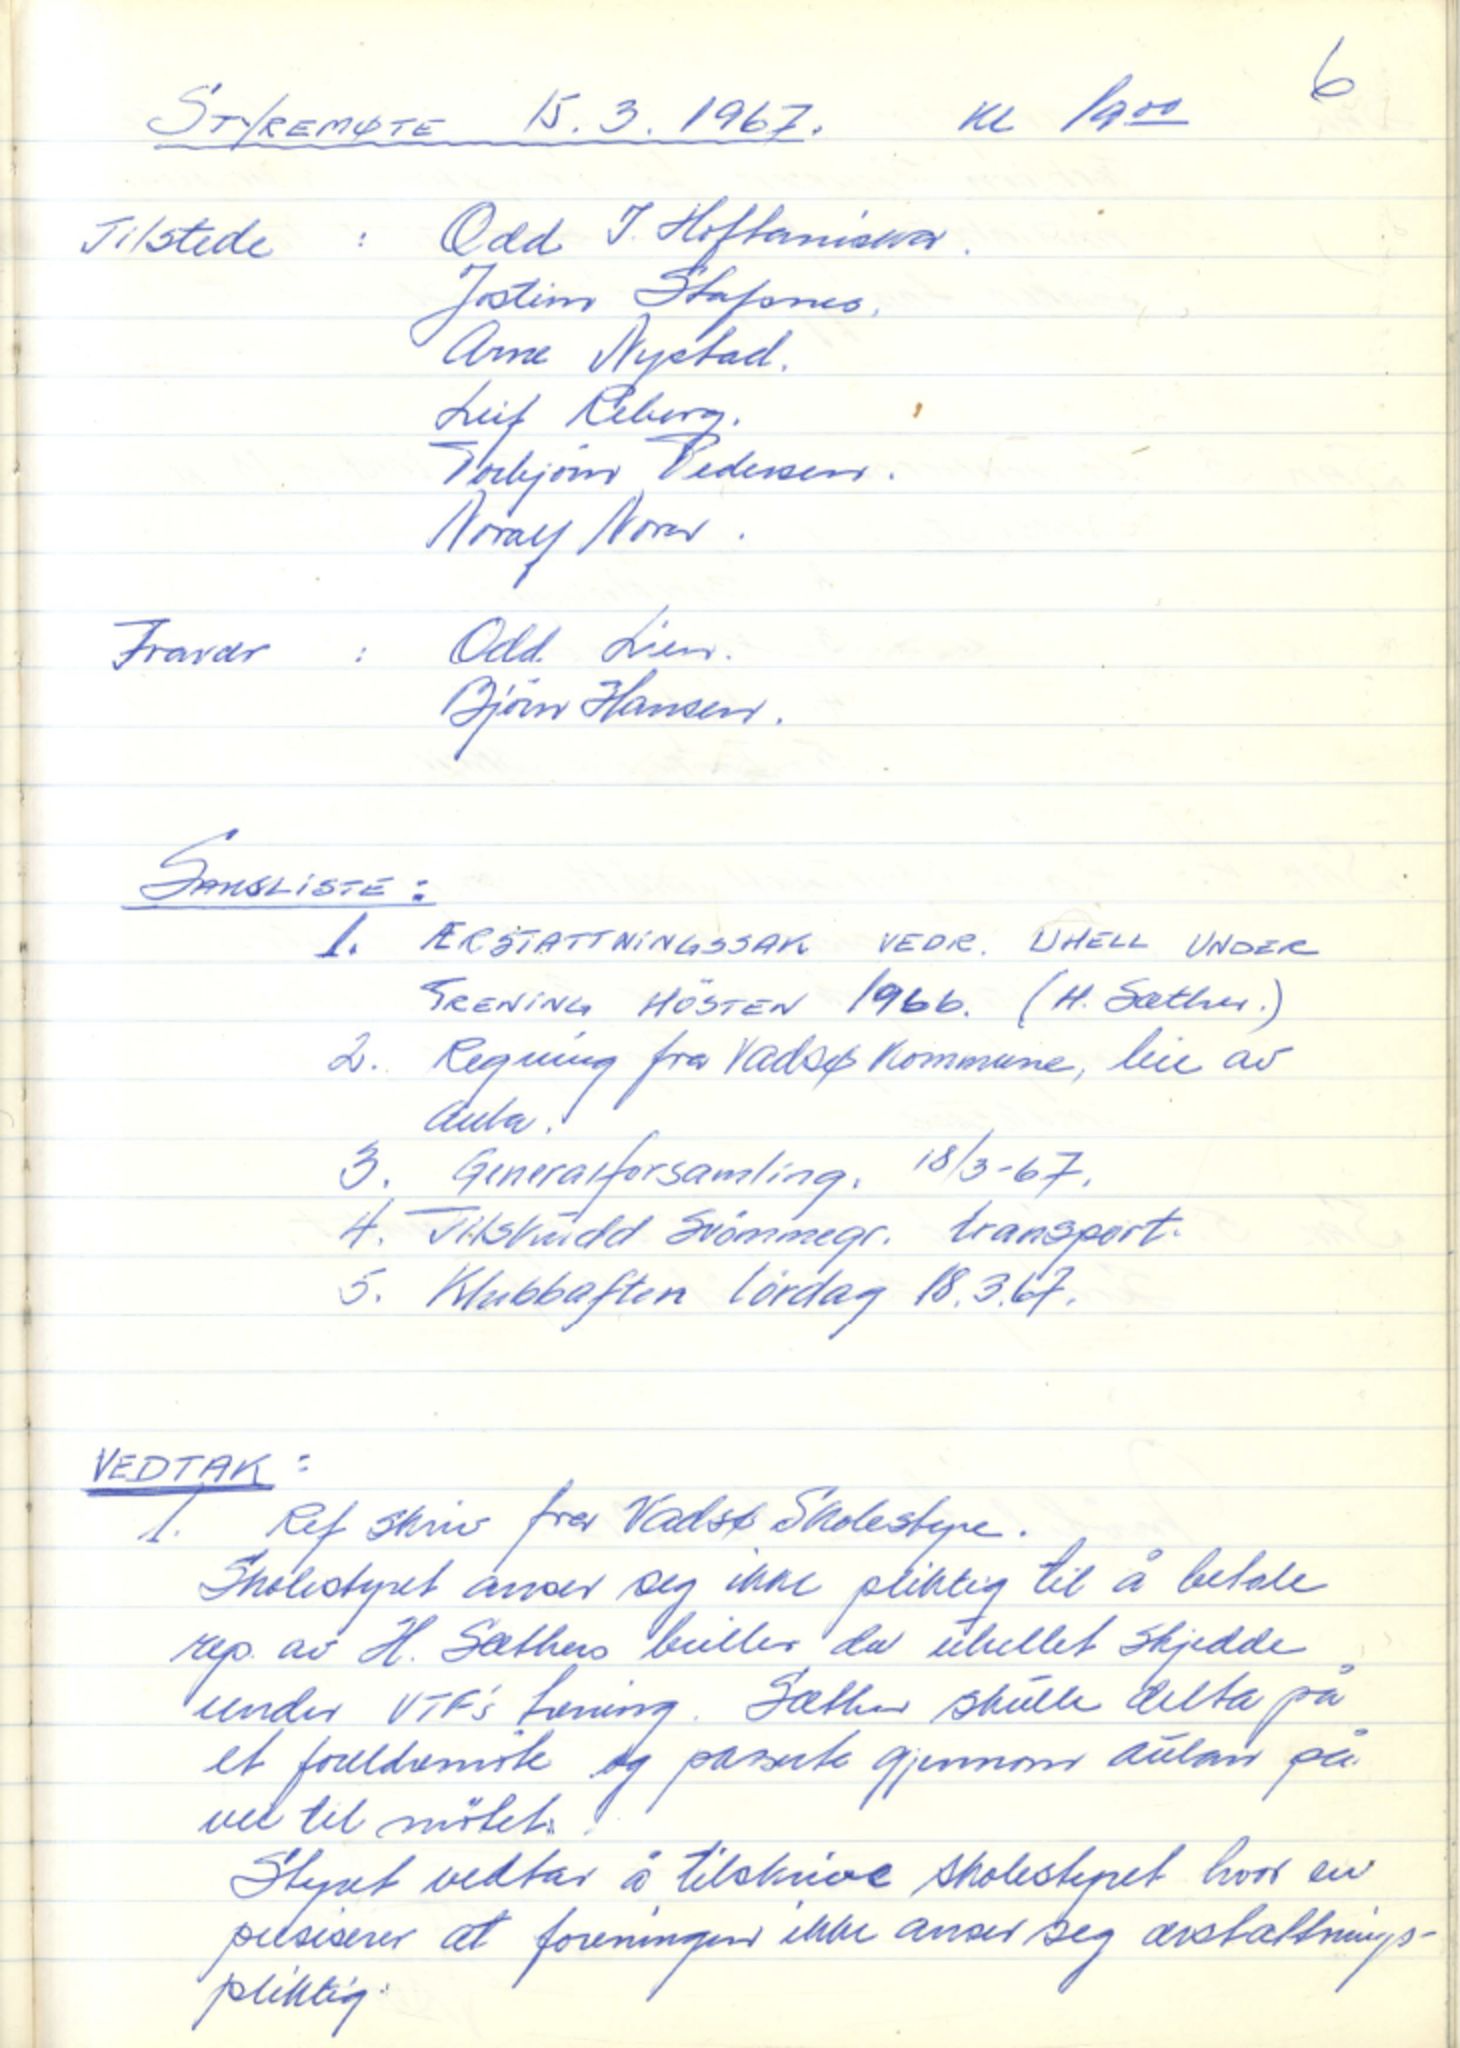 6
STYREMØTE 15.3.1967. KL 19⁰⁰
Tilstede : Odd J.
Jostein Stafsnes.
Arne Nystad.
Leif Reberg.
Torbjörn Pedersen.
Noralf Noren.
Fravær : Odd. Lien.
Björn Hansen.
SAKSLISTE:
1. ÆRSTATTNINGSSAK VEDR. UHELL UNDER
TRENING HÖSTEN 1966. (H. Sæther.)
2. Regning fra Vadsø Kommune, leie av
Aula.
3. Generalforsamling. 18/3-67.
4. Tilskudd Svömmegr. transport.
5. Klubbaften lördag 18.3.67.
VEDTAK:
1. Ref skriv fra Vadsø Skolestyre.
Skolestyret anser seg ikke pliktig til å betale
rep. av H. Sæthers briller da uhellet skjedde
under VTF's trening. Sæther skulle delta på
et foreldremöte og passerte gjennom aulaen på
vei til mötet.
Styret vedtar å tilskrive skolestyret hvor en
presiserer at foreningen ikke anser seg ærstattnings-
pliktig.